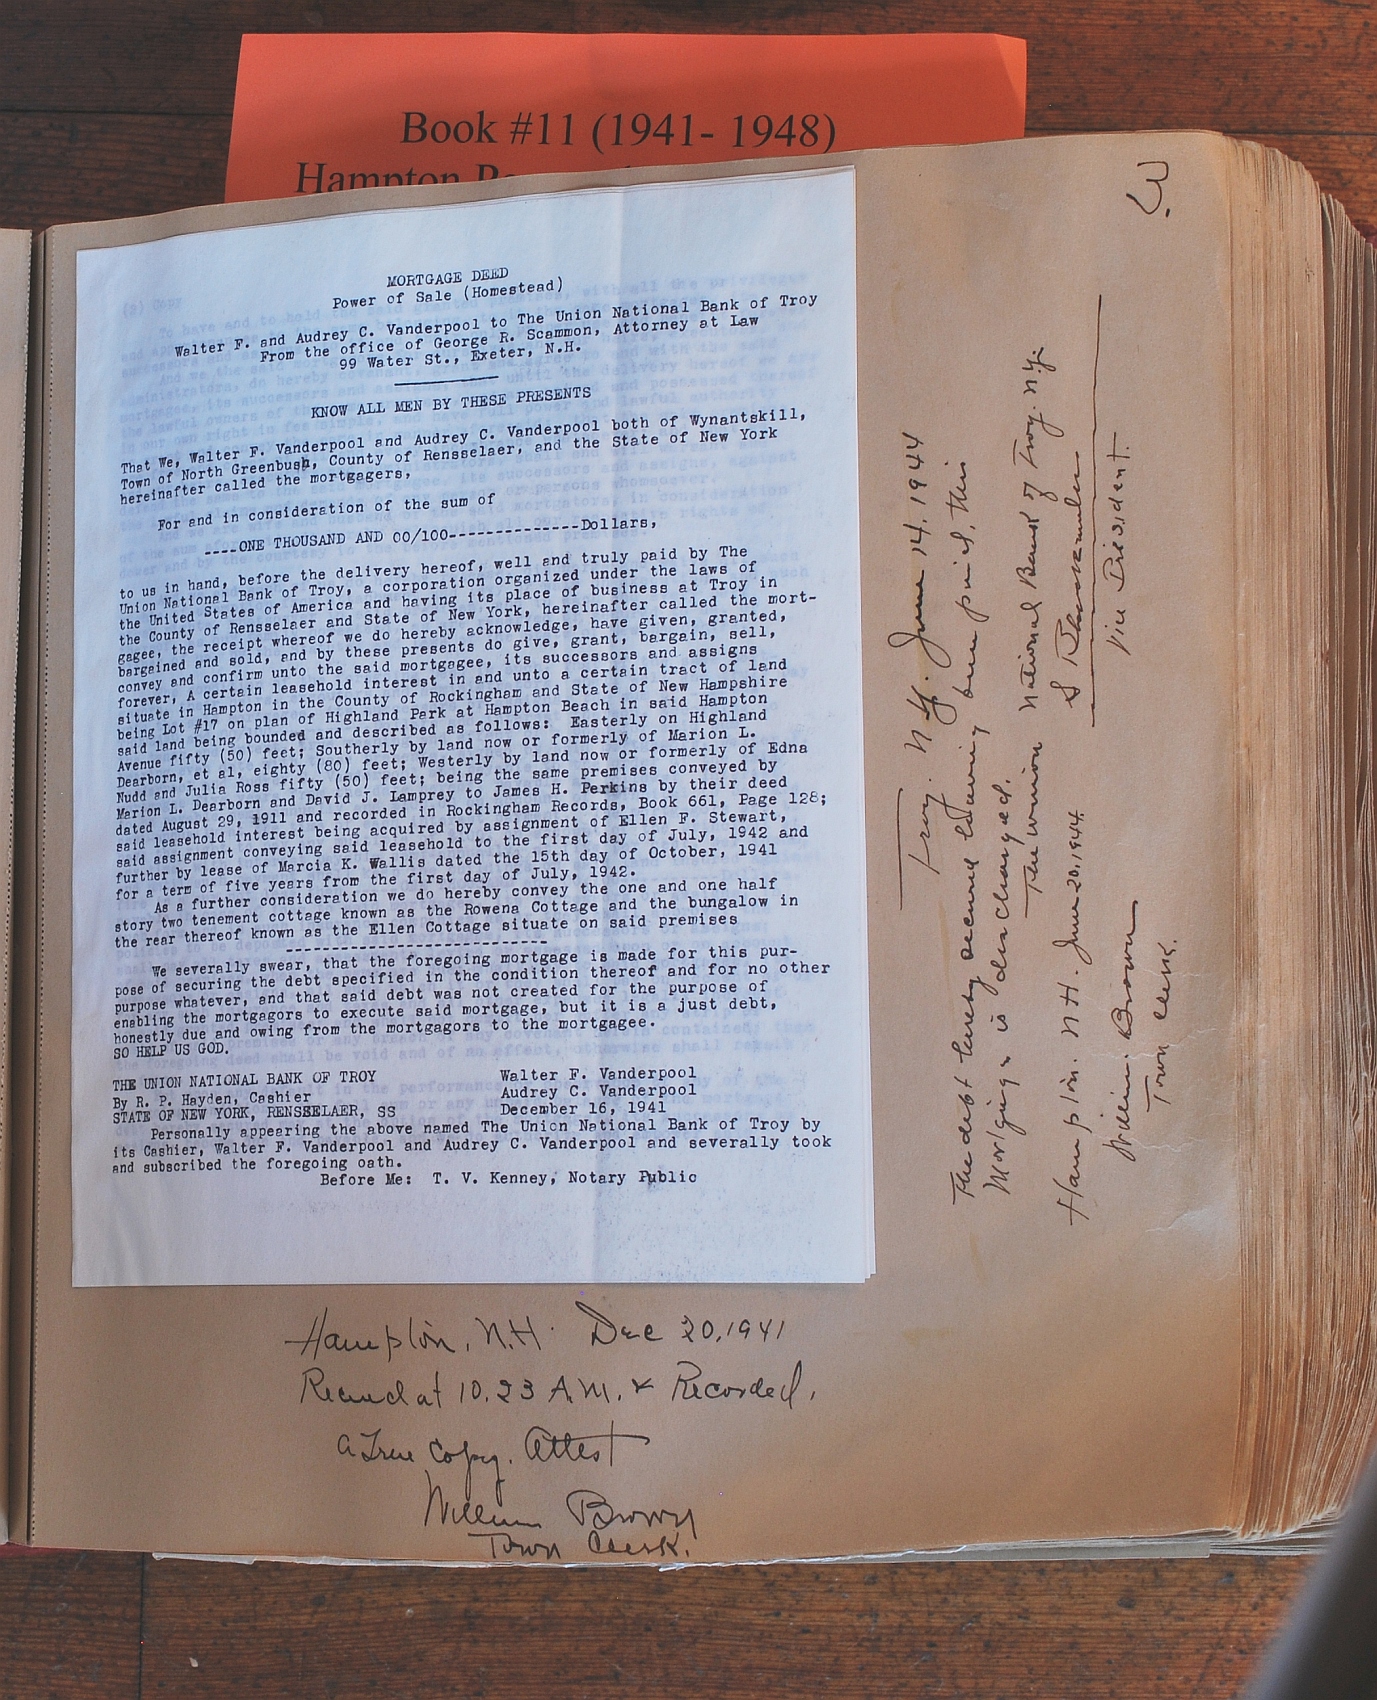 Book #11 (1941- 1948)
Hampton
MORTGAGE DEED
Power of Sale (Homestead)
Walter F. and Audrey C. Vanderpool to The Union National Bank of Troy
From the office of George R. Scammon, Attorney at Law
99 Water St., Exeter, N.H.
KNOW ALL MEN BY THESE PRESENTS
That We, Walter F. Vanderpool and Audrey C. Vanderpool both of Wynantskill,
Town of North Greenbush, County of Rensselaer, and the State of New York
hereinafter called the mortgagers,
For and in consideration of the sum of
----ONE THOUSAND AND 00/100--------------Dollars,
to us in hand, before the delivery hereof, well and truly paid by The
Union National Bank of Troy, a corporation organized under the laws of
the United States of America and having its place of business at Troy in
the County of Rensselaer and State of New York, hereinafter called the mort-
gagee, the receipt whereof we do hereby acknowledge, have given, granted,
bargained and sold, and by these presents do give, grant, bargain, sell,
convey and confirm unto the said mortgagee, its successors and assigns
forever, A certain leasehold interest in and unto a certain tract of land
situate in Hampton in the County of Rockingham and State of New Hampshire
being Lot #17 on plan of Highland Park at Hampton Beach in said Hampton
said land being bounded and described as follows: Easterly on Highland
Avenue fifty (50) feet; Southerly by land now or formerly of Marion L.
Dearborn, et al, eighty (80) feet; Westerly by land now or formerly of Edna
Nudd and Julia Ross fifty (50) feet; being the same premises conveyed by
Marion L. Dearborn and David J. Lamprey to James H. Perkins by their deed
dated August 29, 1911 and recorded in Rockingham Records, Book 661, Page 128;
said leasehold interest being acquired by assignment of Ellen F. Stewart,
said assignment conveying said leasehold to the first day of July, 1942 and
further by lease of Marcia K. Wallis dated the 15th day of October, 1941
for a term of five years from the first day of July, 1942.
As a further consideration we do hereby convey the one and one half
story two tenement cottage known as the Rowena Cottage and the bungalow in
the rear thereof known as the Ellen Cottage situate on said premises
----------------------------
We severally swear, that the foregoing mortgage is made for this pur-
pose of securing the debt specified in the condition thereof and for no other
purpose whatever, and that said debt was not created for the purpose of
enabling the mortgagors to execute said mortgage, but it is a just debt,
honestly due and owing from the mortgagors to the mortgagee.
SO HELP US GOD.
THE UNION NATIONAL BANK OF TROY Walter F. Vanderpool
By R. P. Hayden, Cashier Audrey C. Vanderpool
STATE OF NEW YORK, RENSSELAER, SS December 16, 1941
Personally appearing the above named The Union National Bank of Troy by
its Cashier, Walter F. Vanderpool and Audrey C. Vanderpool and severally took
and subscribed the foregoing oath.
Before Me: T. V. Kenney, Notary Public
Hampton, N.H. Dec 20, 1941
Received at 10.23 A.M. & Recorded.
a True Copy. Attest
William Brown
Town Clerk.
Troy. N.Y. June 14, 1944
The debt hereby secured having been paid, this
Mortgage is discharged.
The Union National Bank of Troy. N.Y.
Vice President.
Hampton. N.H. June 20, 1944.
William Brown
Town Clerk.